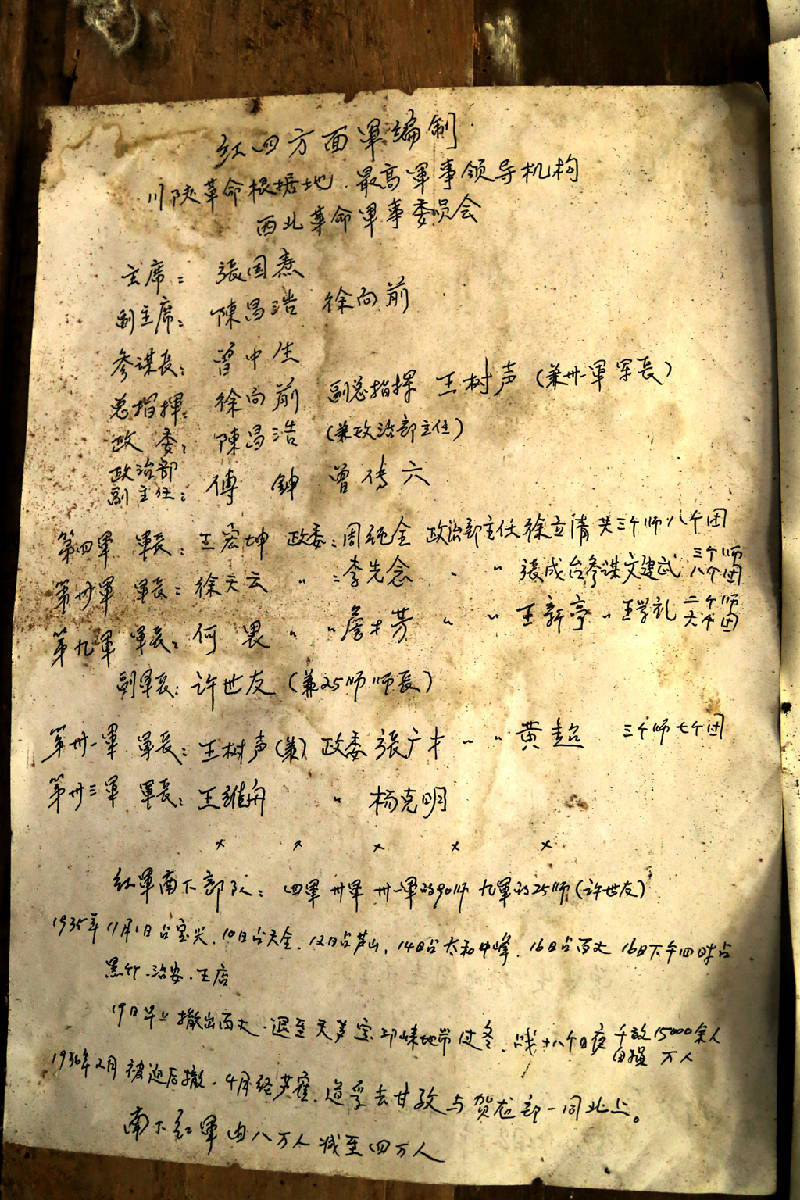 红四方面軍编制
川陕革命根据地.最高軍事领导机构
西北革命軍事委员会
主席: 張国焘
副主席: 陳昌浩 徐向前
参谋長: 曾中生
总指揮: 徐向前 副总指揮 王树声 (兼卅一軍军長)
政 委: 陳昌浩 (兼政治部主任)
政治部
副主任: 傅 鈡 曾传六
第四軍 軍長: 王宏坤 政委: 周纯全 政治部主任徐立清 共三个师八个团
第卅軍 軍長: 徐天云 〃 : 李先念 〃 〃 張成台参谋文建武 三个师八个团
第九軍 軍長: 何畏 〃 〃 詹才芳 〃 〃 王新亭 〃 王学礼 二个师六个团
副軍長: 许世友 (兼25师师長)
第卅一軍 軍長: 王树声(兼) 政委 張广才 〃 〃 黄超 三个师七个团
第卅三軍 軍長: 王維舟 〃 杨克明
× × × × ×
红軍南下部队: 四軍 卅軍 卅一軍的90师 九軍的25师(许世友)
1935年11月1日占宝兴. 10日占天全. 12日占芦山. 14日占太和中峰. 16日占百丈 16日下午四时占
黑竹.治安.王店
19日早上撤出百丈.退至天芦宝邛崃地带过冬. 战十八个日夜 千敌15000余人
自损 万人
1936年2月被迫后撤. 4月经芦霍.道孚去甘孜与贺龙部一同北上。
南下红軍由八万人减至四万人